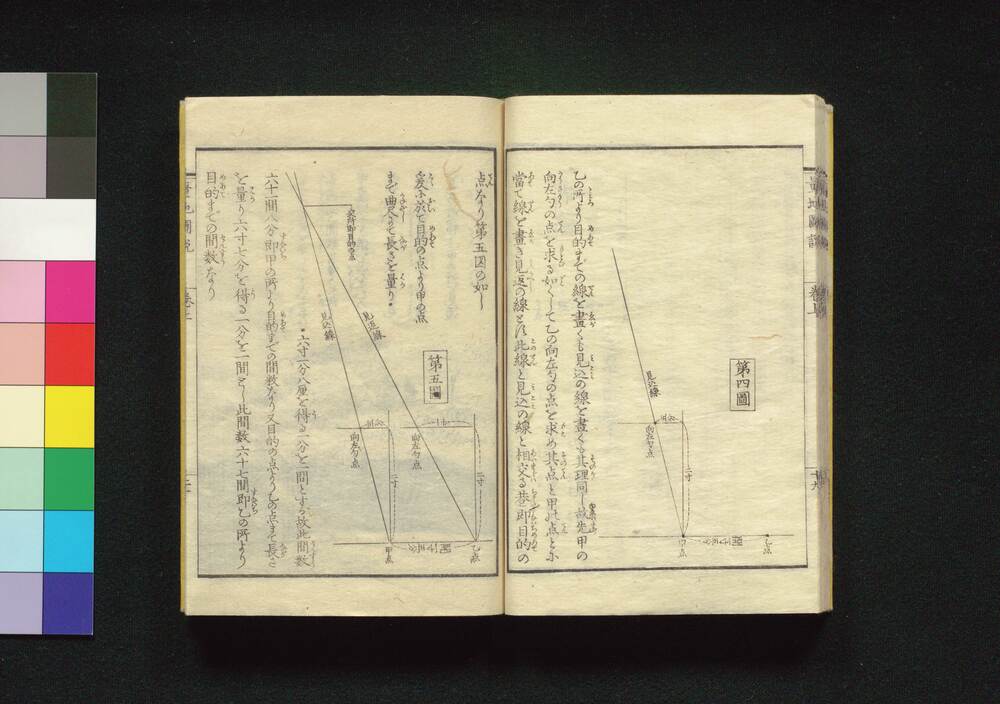 第四圖
乙点
甲点
二寸
見込線
向左勾点
乙の所より目的までの線を畫くも見込の線を畫くも其理同じ故先甲の
向左勾の点を求る如くして乙の向左勾の点を求め其点と甲の点とに
當て線を畫き見返の線とす此線と見込の線と相交る巷即目的の
点なり第五図の如し
爰に於て目的の点より甲の点
まで曲尺にて長さを量り
第五圖
交所即目的の点
見返線
見込線
向左勾点
向左勾点
二寸
二寸
乙点
甲点
六寸一分八厘を得る一分を一間とする故此間数
六十一間八分即甲の所より目的までの間数なり又目的の点より乙の点まで長さ
を量り六寸七分を得る一分を一間とし此間数六十七間即乙の所より
目的までの間数なり